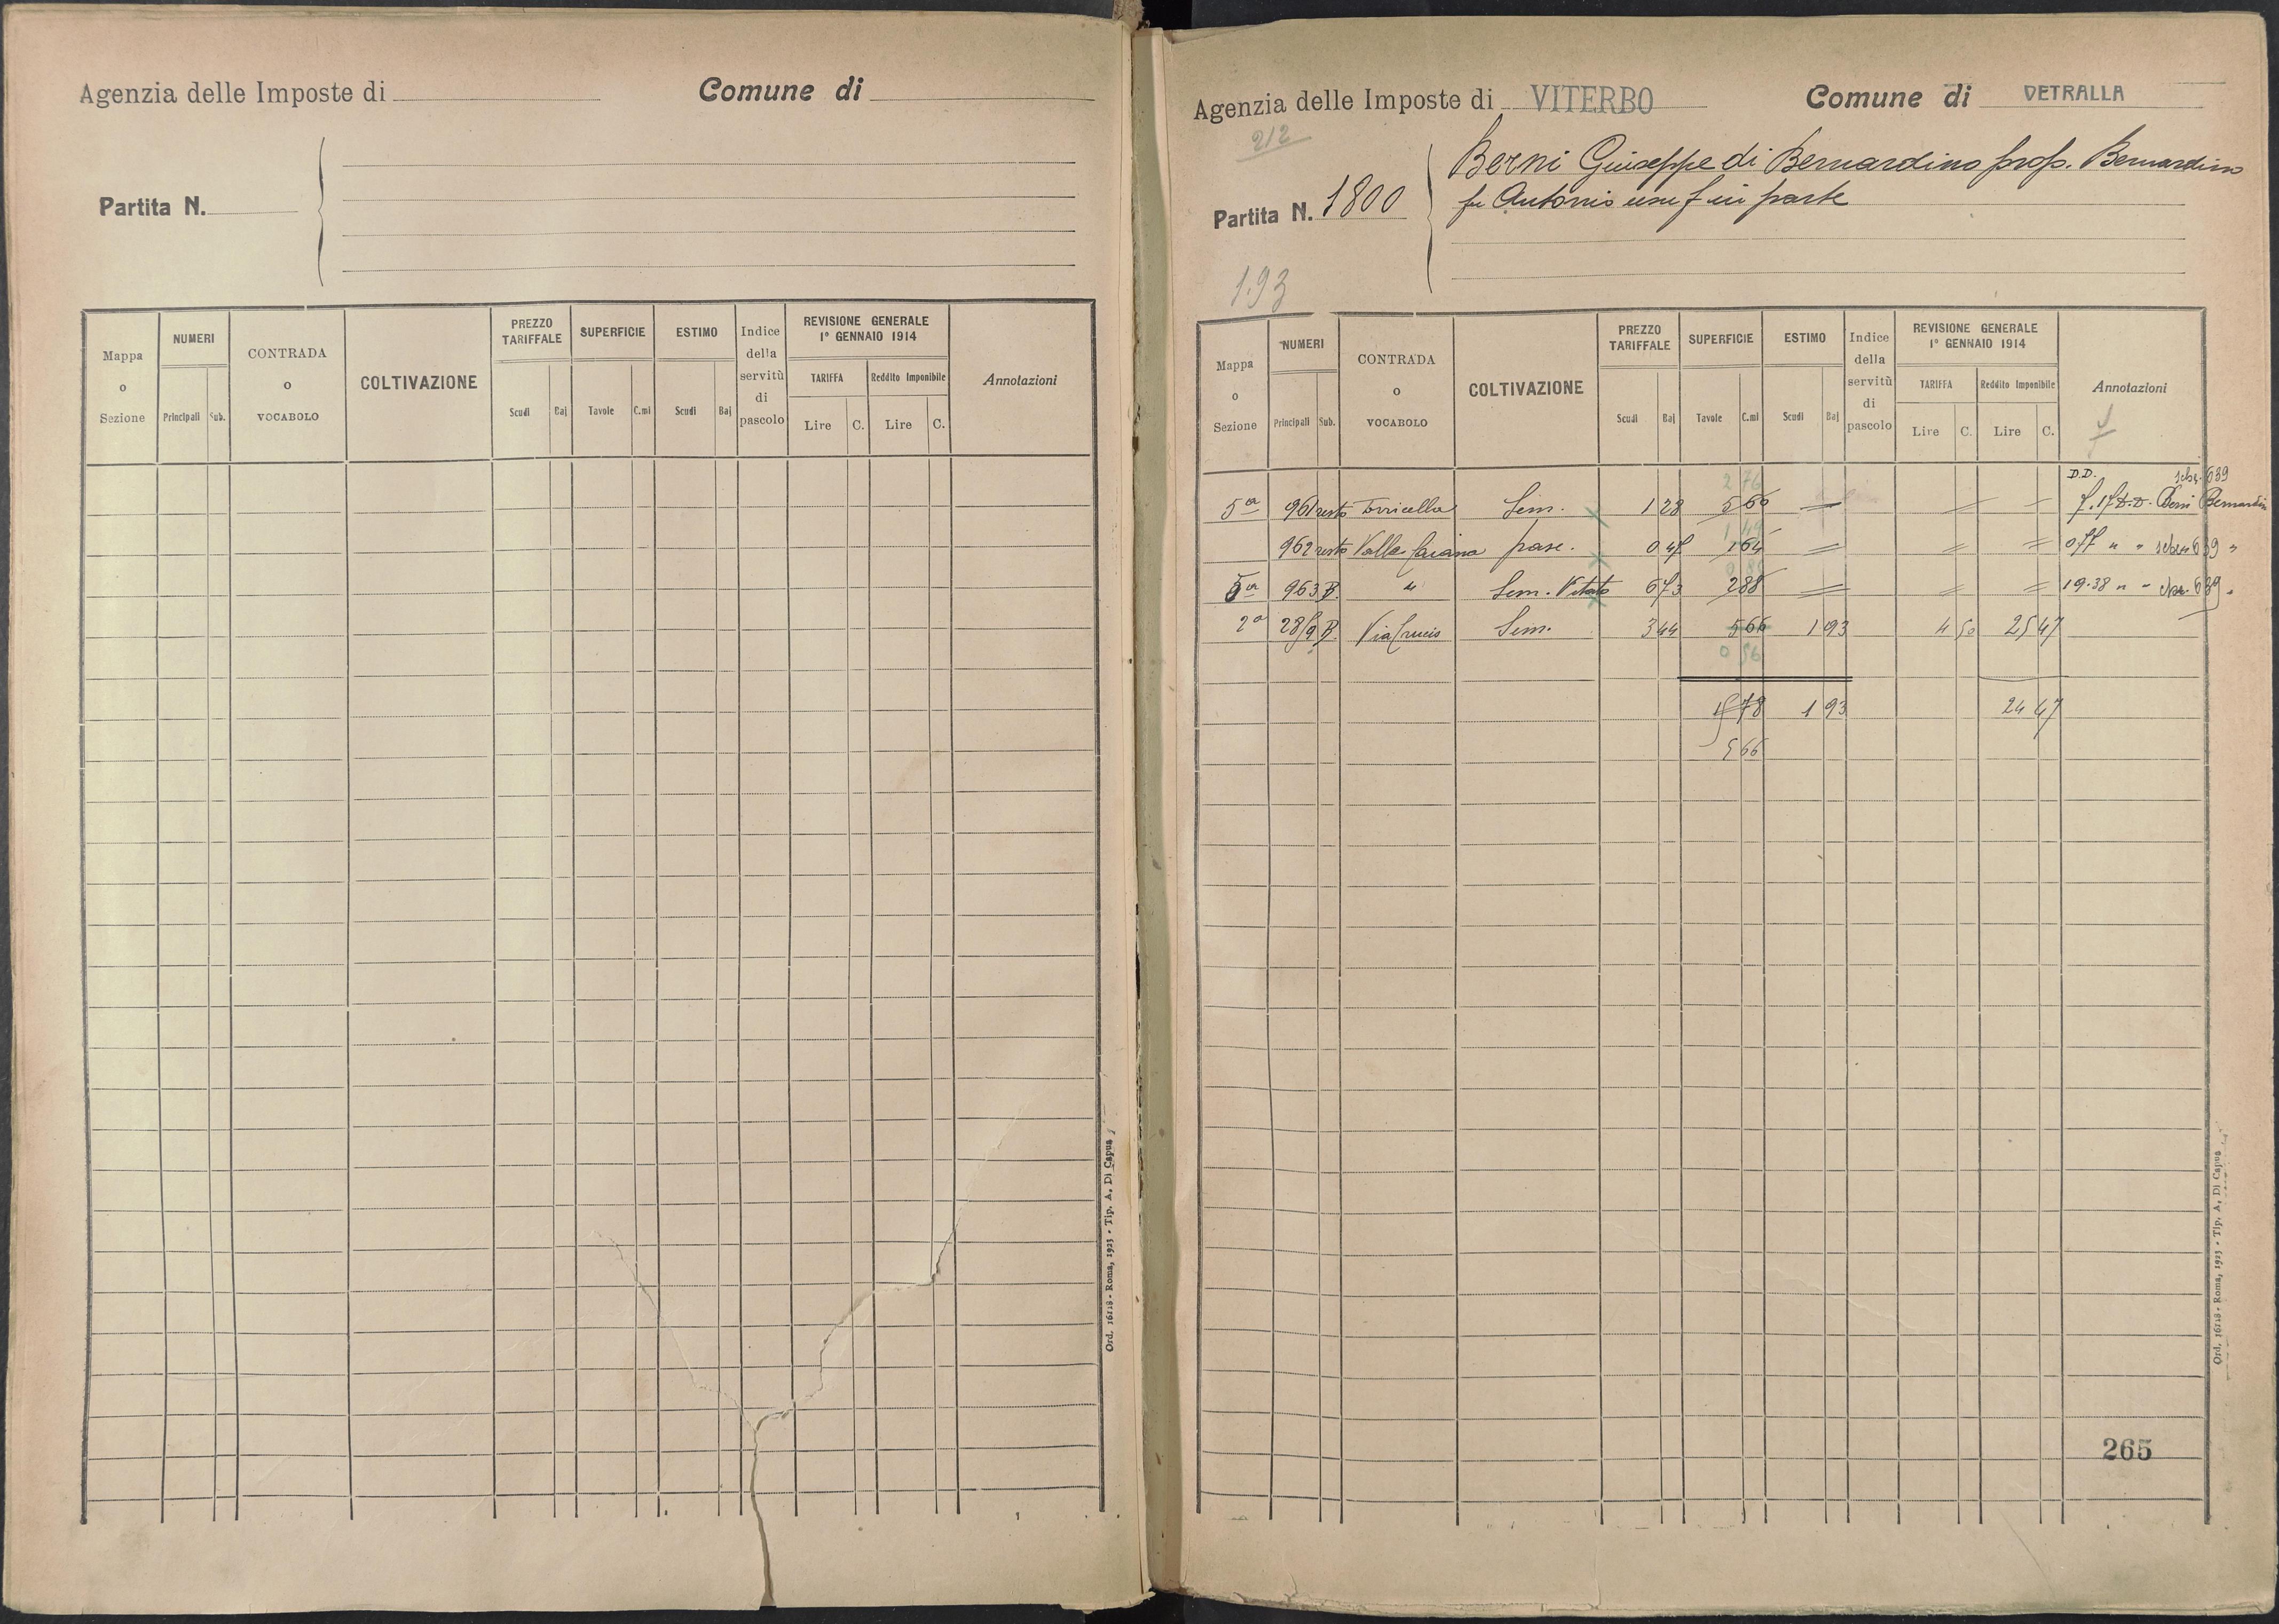 Agenzia delle Imposte di
Comune di
Partita N.
Mappa o Sezione
NUMERI
Principali
Sub.
CONTRADA o VOCABOLO
COLTIVAZIONE
PREZZO TARIFFALE
Scudi
Baj
SUPERFICIE
Tavole
C.mi
ESTIMO
Scudi
Baj
Indice della servitù di pascolo
REVISIONE GENERALE 1° GENNAIO 1914
TARIFFA
Lire
C.
Reddito Imponibile
Lire
C.
Annotazioni
Ord. 16118 - Roma, 1923 - Tip. A. Di Capua
Agenzia delle Imposte di VITERBO
Comune di VETRALLA
212
Partita N. 1800
Berni Giuseppe di Bernardino prop. Bernardino
fu Antonio usuf in parte
193
Mappa o Sezione
NUMERI
Principali
Sub.
CONTRADA o VOCABOLO
COLTIVAZIONE
PREZZO TARIFFALE
Scudi
Baj
SUPERFICIE
Tavole
C.mi
ESTIMO
Scudi
Baj
Indice della servitù di pascolo
REVISIONE GENERALE 1° GENNAIO 1914
TARIFFA
Lire
C.
Reddito Imponibile
Lire
C.
Annotazioni
D.D. 639
2 76
5a 961 resto Torricella Sem. 1 28 5 60 D.D. Berni Bernardin
1 49
962 resto Valle Caiana pasc. 1 64 " " 639 "
5a 963 B. " Sem. Vitato 6 73 2 88 19.38 " " 639 "
2a 28/9 B. Via Crucis Sem. 3 44 5 66 1 93 4 50 25 47
0 56
15 78 1 93 24 47
5 66
265
Ord. 16118 - Roma, 1923 - Tip. A. Di Capua